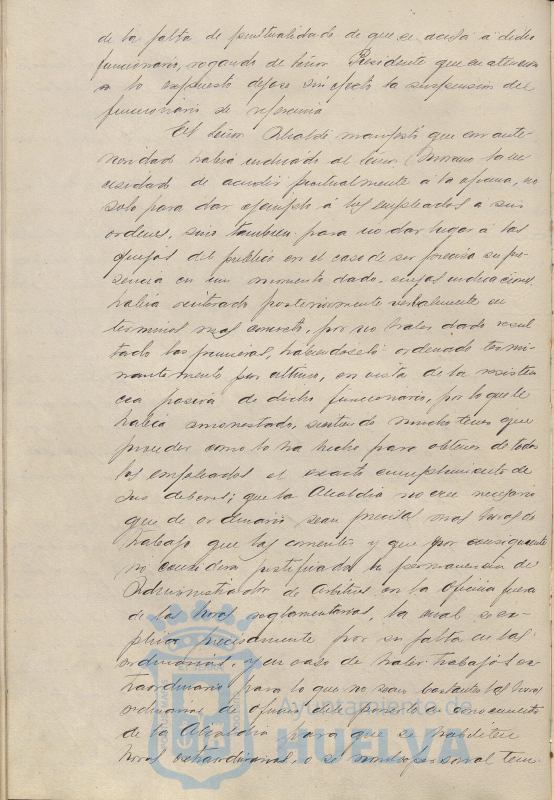 de la falta de puntualidad de que se acusa á dicho
funcionario, rogando al Señor Presidente que en atencion
a lo expuesto dejase sin efecto la suspensión del
funcionario de referencia.
El Señor Alcalde manifestó que con ante-
rioridad habia indicado al Señor la ne
cesidad de acudir puntualmente á la oficina, no
solo para dar ejemplo á los empleados a sus
ordenes, sino tambien para no dar lugar á las
quejas del publico en el caso de ser precisa su pre
sencia en un momento dado, cuyas indicaciones
habia reiterado posteriormente verbalmente en
terminos mas concretos, por no haber dado resul
tado las primeras, habiendoselo ordenado termi-
nantemente por ultimo, en vista de la resisten
cia pasiva de dicho funcionario, por lo que le
habia amonestado, sintiendo mucho tener que
proceder como lo ha hecho para obtener de todos
los empleados el exacto cumplimiento de
sus deberes; que la Alcaldia no cree necesario
que de ordinario sean precisas mas horas de
trabajo que las corrientes y que por consiguiente
no considera justificada la permanencia del
Administrador de Arbitrios en la Oficina fuera
de las horas reglamentarias, la cual se ex-
plica precisamente por su falta en las
ordinarias, y en caso de haber trabajos ex-
traordinarios para lo que no sean bastantes las horas
ordinarias de oficina, debe ponerlo en conocimiento
de la Alcaldia para que se habiliten
horas extraordinarias, o se nombre personal tem-
Ayuntamiento de
HUELVA